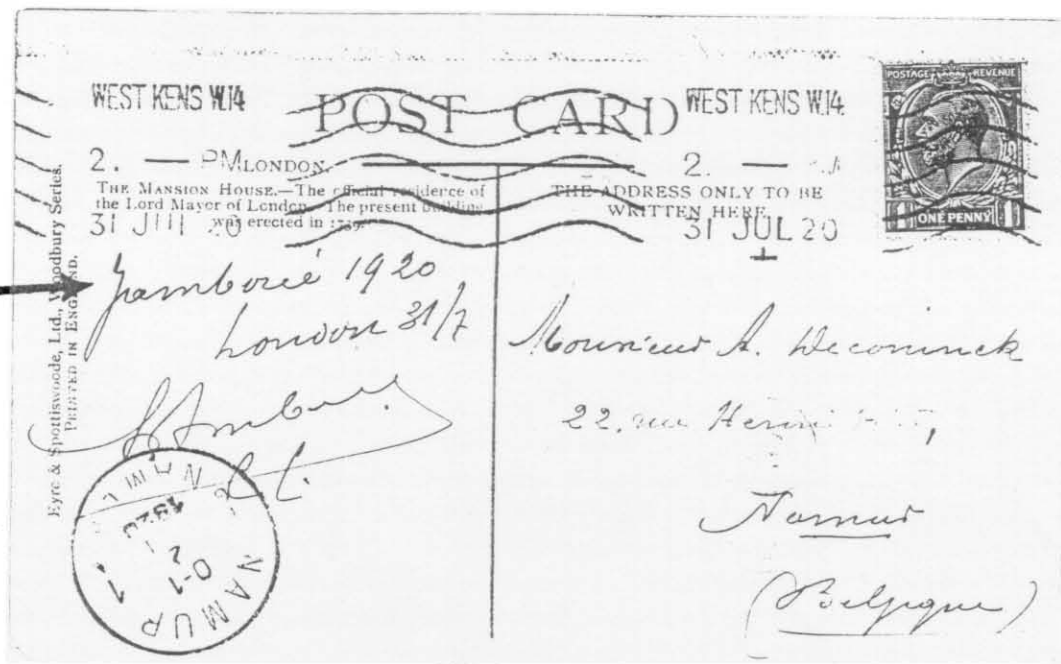 WEST KENS W.14
2. — PM
31 JUL 20
POST CARD
WEST KENS W.14
2. —
31 JUL 20
POSTAGE REVENUE
ONE PENNY
LONDON.
THE MANSION HOUSE.—The official residence of
the Lord Mayor of London. The present building
was erected in
THE ADDRESS ONLY TO BE
WRITTEN HERE
Eyre & Spottiswoode, Ltd., Woodbury Series.
PRINTED IN ENGLAND.
Jamborée 1920
London 31/7
Monsieur A. Deconinck
22. rue Henri
Namur
(Belgique)
NAMUR 1
0-1
1920
NAMUR